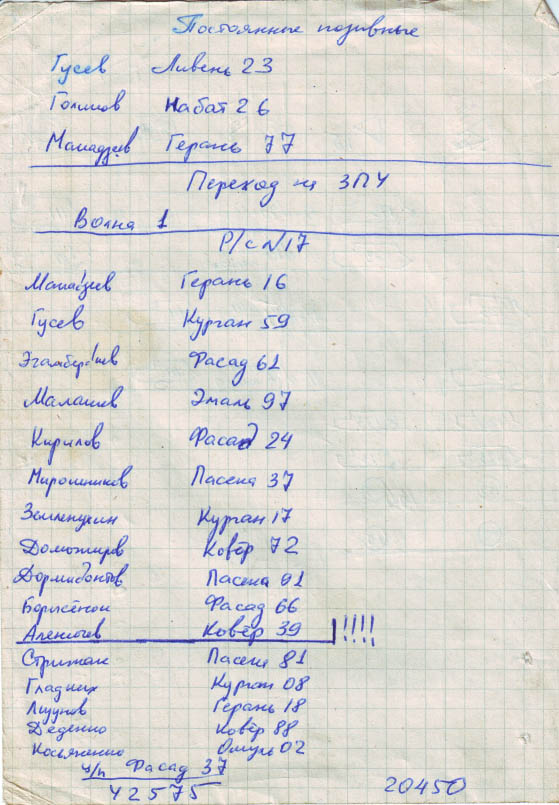 Постоянные позывные
Гусев Ливень 23
Голиков Набат 26
Герань 77
Переход на ЗПУ
Волна 1
Р/с №17
Герань 16
Гусев Курган 59
Фасад 61
Малашев Эмаль 97
Кирилов Фасад 24
Мирошников Пасека 37
Курган 17
Доможиров Ковёр 72
Дормидонтов Пасека 91
Борисёнок Фасад 66
Ковёр 39 !!!!
Стрижак Пасека 81
Гладких Курган 08
Герань 18
Деденко Ковёр 88
Косьяненко 02
ч/п Фасад 37
42575
20450